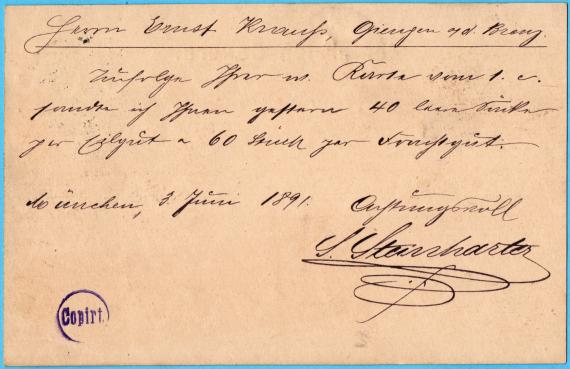 Herrn Ernst Krauß, Giengen a/d. Brenz.
Zufolge Ihrer w. Karte vom 1. c.
sandte ich Ihnen gestern 40 leere Säcke
per Eilgut & 60 Stück per Frachtgut.
München, 3. Juni 1891. Achtungsvoll
S. Steinharter
Copirt.